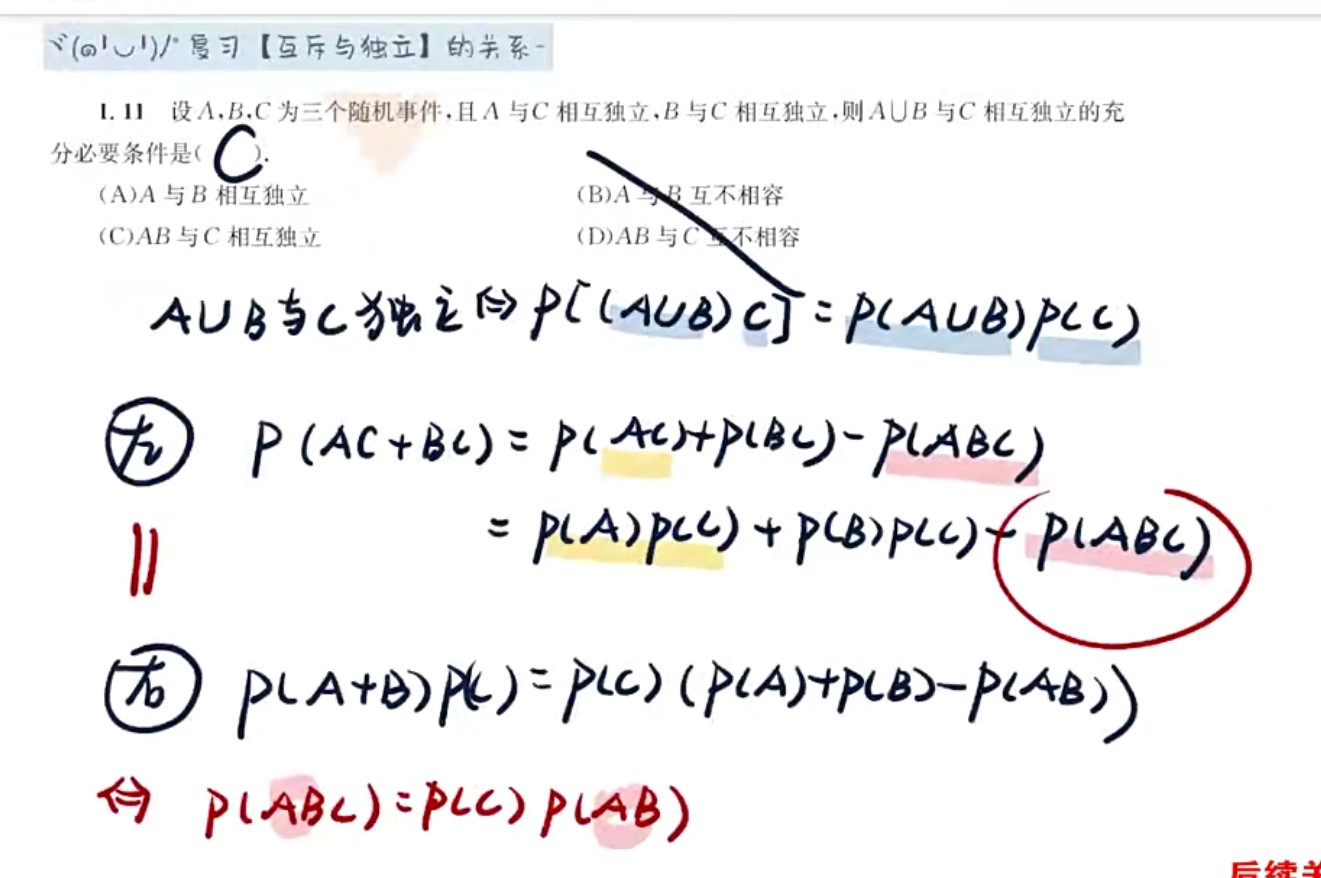 ヾ(๑╹◡╹)ﾉ" 复习【互斥与独立】的关系-
1.11 设A,B,C为三个随机事件,且A与C相互独立,B与C相互独立,则A∪B与C相互独立的充
分必要条件是( C ).
(A)A与B相互独立 (B)A与B互不相容
(C)AB与C相互独立 (D)AB与C互不相容
A∪B与C独立⇔P[(A∪B)C]=P(A∪B)P(C)
左 P(AC+BC)=P(AC)+P(BC)-P(ABC)
=P(A)P(C)+P(B)P(C)-P(ABC)
||
右 P(A+B)P(C)=P(C)(P(A)+P(B)-P(AB))
⇔ P(ABC)=P(C)P(AB)
后续关